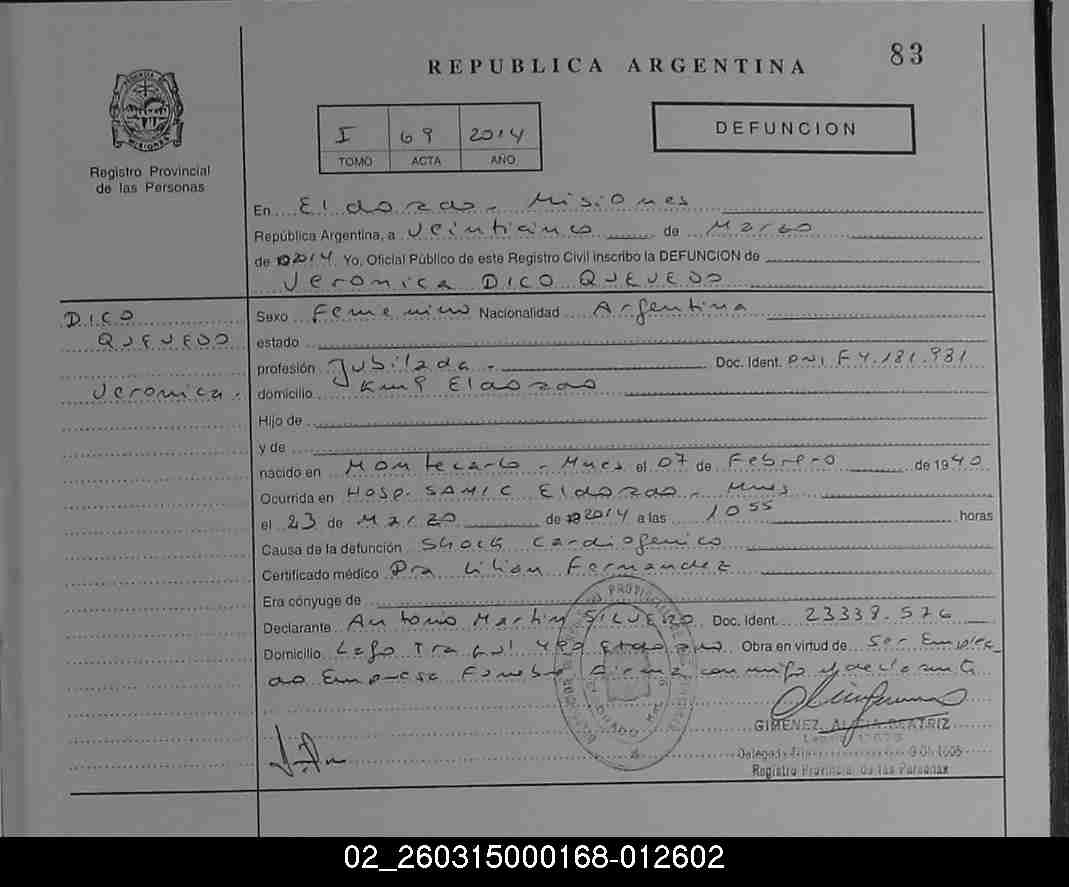 REPUBLICA ARGENTINA
83
I 69 2014
TOMO ACTA AÑO
DEFUNCION
PROVINCIA DE
MISIONES
Registro Provincial
de las Personas
En Eldorado - Misiones
República Argentina, a Veinticinco de Marzo
de 2014 Yo, Oficial Público de este Registro Civil inscribo la DEFUNCION de
Veronica DICO QUEVEDO
DICO
QUEVEDO
Veronica.
Sexo Femenino Nacionalidad Argentina
estado
profesión Jubilada. Doc. Ident. DNI F4.181.981
domicilio Km9 Eldorado
Hijo de
y de
nacido en Montecarlo - Mnes el 07 de Febrero de 1940
Ocurrida en Hosp. SAMIC Eldorado - Mnes
el 23 de Marzo de 2014 a las 10 55 horas
Causa de la defunción Shock Cardiogenico
Certificado médico Dra Lilian Fernandez
Era cónyuge de
Declarante Antonio Martin SILVERO Doc. Ident. 23339.576
Domicilio Lago Obra en virtud de Ser Emplea
do Empresa Funebre Firma conmigo y declarante
GIMENEZ, ALICIA BEATRIZ
Registro Provincial de las Personas
02_260315000168-012602